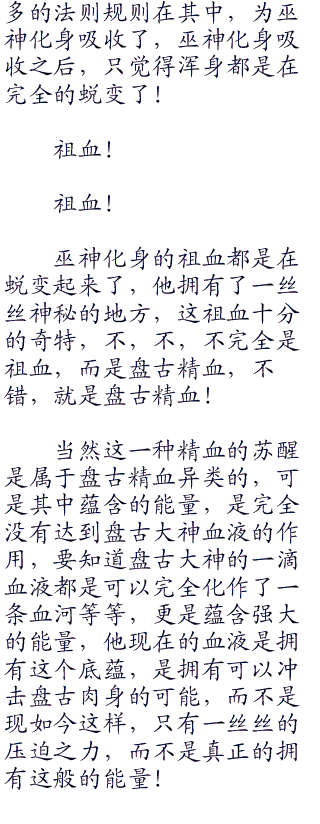 多的法则规则在其中，为巫
神化身吸收了，巫神化身吸
收之后，只觉得浑身都是在
完全的蜕变了！
祖血！
祖血！
巫神化身的祖血都是在
蜕变起来了，他拥有了一丝
丝神秘的地方，这祖血十分
的奇特，不，不，不完全是
祖血，而是盘古精血，不
错，就是盘古精血！
当然这一种精血的苏醒
是属于盘古精血异类的，可
是其中蕴含的能量，是完全
没有达到盘古大神血液的作
用，要知道盘古大神的一滴
血液都是可以完全化作了一
条血河等等，更是蕴含强大
的能量，他现在的血液是拥
有这个底蕴，是拥有可以冲
击盘古肉身的可能，而不是
现如今这样，只有一丝丝的
压迫之力，而不是真正的拥
有这般的能量！